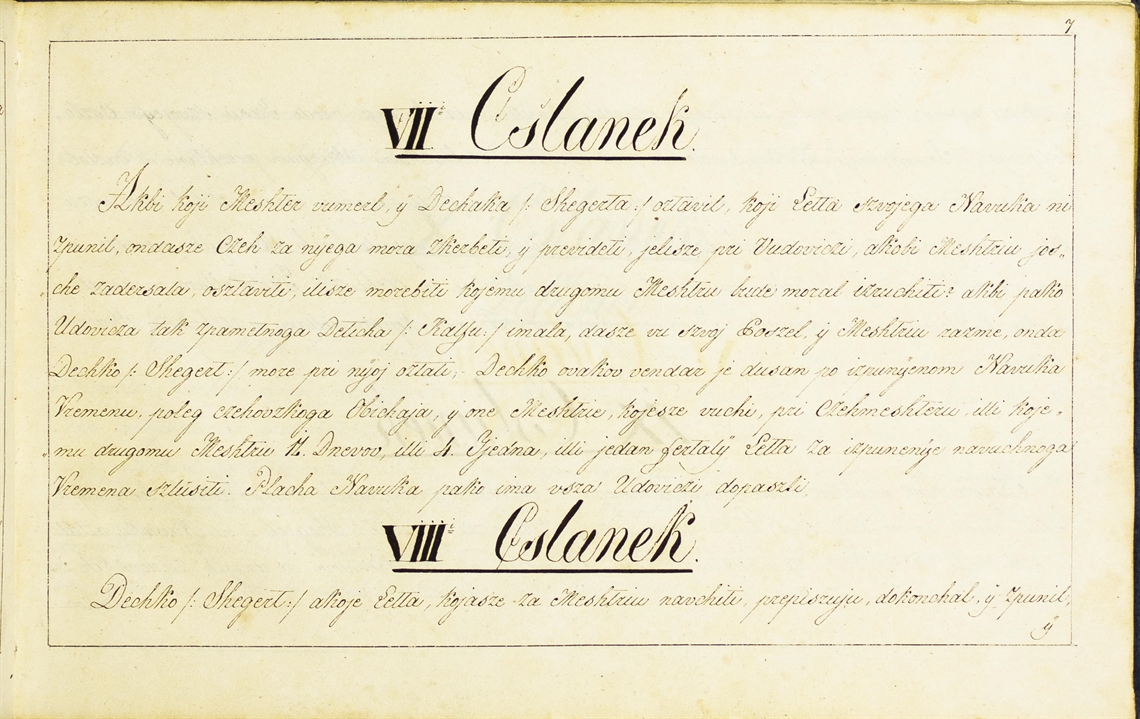 7
VII.i Cslanek.
Akbi koji Meshter vumerl, ÿ Dechaka /: Shegerta :/ oztavil, koji Letta szvojega Navuka ni
zpunil, ondasze Czeh za nÿega mora zkerbeti, ÿ prevideti, jelisze pri Vudoviczi, akobi Meshtriu jos„
che zadersala, osztaviti, ilisze morebiti kojemu drugomu Meshtru bude moral izruchiti? akbi pako
Udovicza tak zpametnoga Deticha /: Kalfu :/ imala, dasze vu szvoj Poszel, ÿ Meshtriu razme, onda
Dechko /: Shegert :/ more pri nÿoj oztati; Dechko ovakov vendar je dusan po izpunÿenom Navuka
Vremenu, poleg czehovzkoga Obichaja, ÿ one Meshtrie, kojesze vuchi, pri Czehmeshteru, illi koje„
mu drugomu Meshtru 14. Dnevov, illi 4. Tjedna, illi jedan fertalÿ Letta za izpunenÿe navuchnoga
Vremena szlusiti. Placha Navuka pako ima vsza Udoviczi dopaszti.
VIII.i Cslanek.
Dechko /: Shegert :/ akoje Letta, kojasze za Meshtriu navchiti, prepiszuju, dokonchal, ÿ zpunil,
ÿ